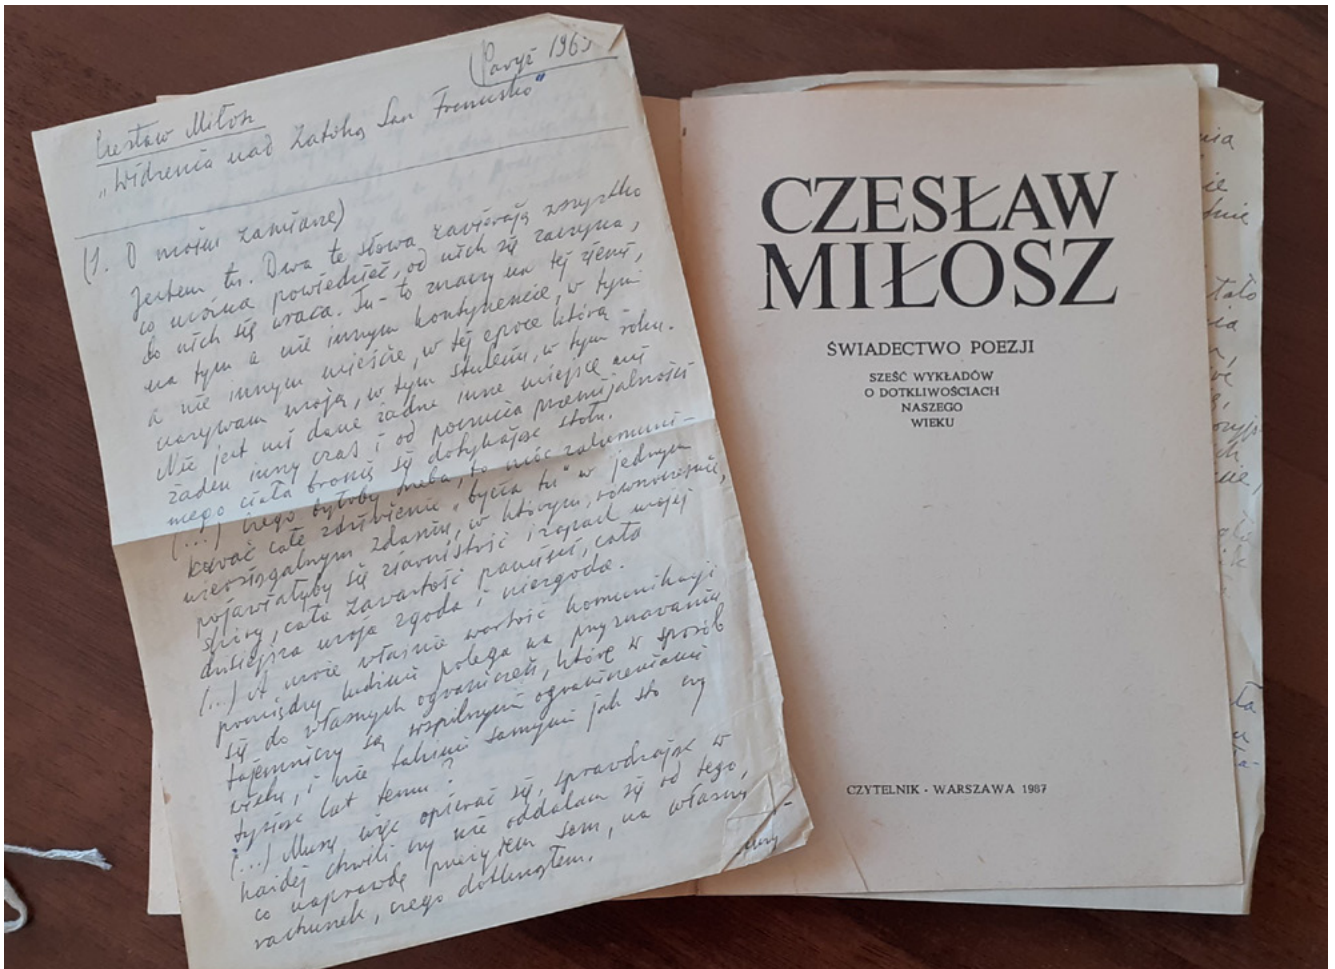 (Paryż 1969
Czesław Miłosz
„Widzenia nad Zatoką San Francisko"
(1. O moim zamiarze)
Jestem tu. Dwa te słowa zawierają wszystko
co można powiedzieć, od nich się zaczyna,
do nich się wraca. Tu - to znaczy na tej ziemi,
na tym a nie innym kontynencie, w tym
a nie innym mieście, w tej epoce którą
nazywam moją, w tym stuleciu, w tym roku.
Nie jest mi dane żadne inne miejsce ani
żaden inny czas i od poczucia przemijalności
mego ciała bronię się dotykając stołu.
(...) Czego byłoby trzeba, to móc zakomuni-
kować całe zdziwienie „bycia tu" w jednym
nieosiągalnym zdaniu, w którym, równocześnie,
pojawiałyby się ziarnistość i zapach mojej
skóry, cała zawartość pamięci, cała
dzisiejsza moja zgoda i niezgoda.
(...) A może właśnie wartość komunikacji
pomiędzy ludźmi polega na przyznawaniu
się do własnych ograniczeń, które w sposób
tajemniczy są wspólnymi ograniczeniami
wieku, i nie takimi samymi jak sto czy
tysiąc lat temu?
(...) Muszę więc opierać się, sprawdzając w
każdej chwili czy nie oddalam się od tego,
co naprawdę przeżyłem sam, na własny
rachunek, czego dotknąłem.
CZESŁAW
MIŁOSZ
ŚWIADECTWO POEZJI
SZEŚĆ WYKŁADÓW
O DOTKLIWOŚCIACH
NASZEGO
WIEKU
CZYTELNIK - WARSZAWA 1987